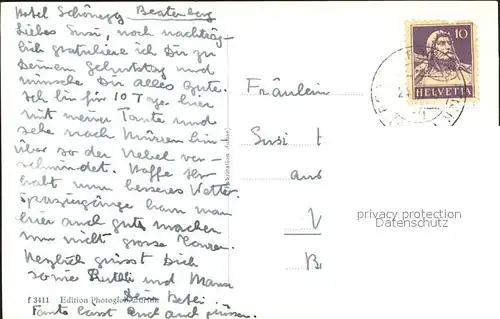 Hotel Schönegg Beatenberg
Liebes Susi, noch nachträg-
lich gratuliere ich Dir zu
Deinem Geburtstag und
wünsche Dir alles Gute.
Ich bin für 10 Tage hier
mit meiner Tante und
sehe nach Mürren hin-
über so der Nebel ver-
schwindet. Hoffe Ihr
habt nun besseres Wetter.
Spaziergänge kann man
hier auch gute machen
nur nicht grosse Touren.
Herzlich grüsst Dich
sowie Ruthli und Mama
Dein
Tante lässt Euch auch grüssen.
f 3411 Edition Photoglob, Zürich
10
HELVETIA
Fräulein
Susi
aus
privacy protection
Datenschutz